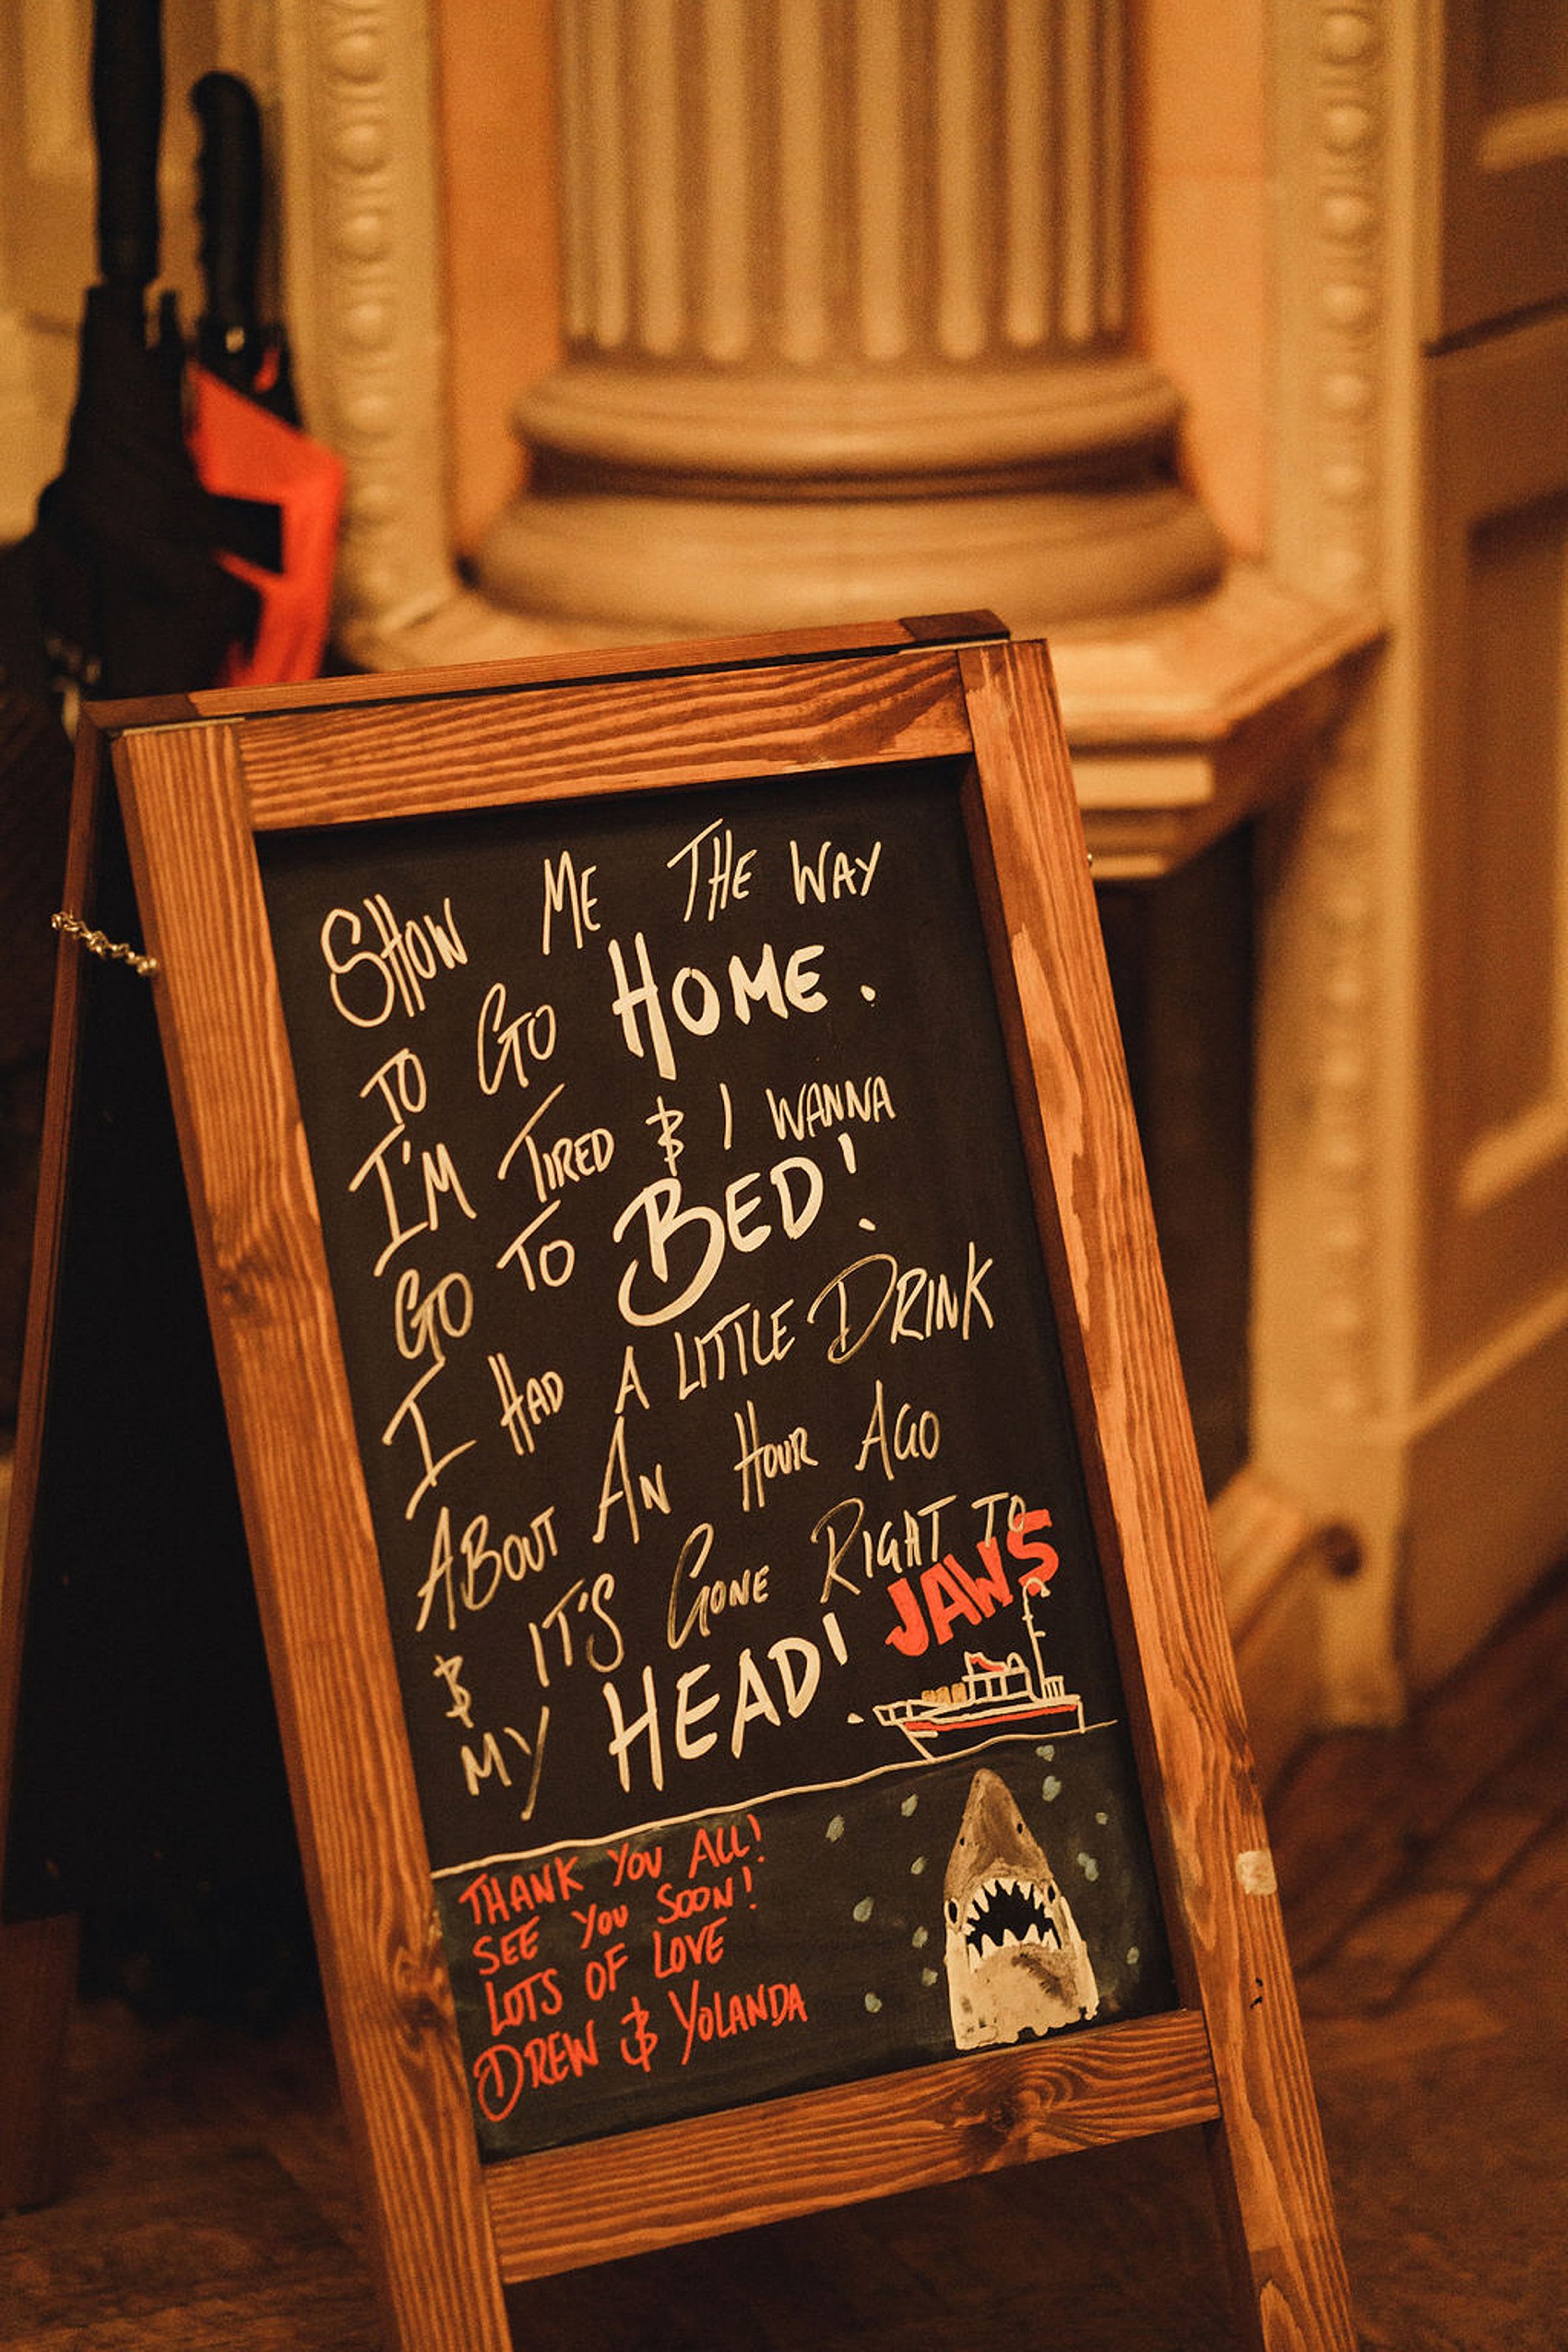 SHOW ME THE WAY
TO GO HOME.
I'M TIRED & I WANNA
GO TO BED!
I HAD A LITTLE DRINK
ABOUT AN HOUR AGO
& IT'S GONE RIGHT TO
MY HEAD!
JAWS
THANK YOU ALL!
SEE YOU SOON!
LOTS OF LOVE
DREW & YOLANDA